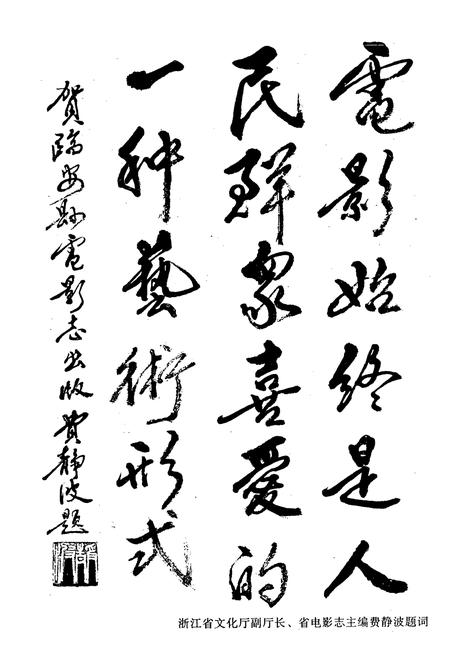 電影始终是人
民群眾喜愛的
一种藝術形式
賀臨安县電影志出版 費静波題
浙江省文化厅副厅长、省电影志主编费静波题词